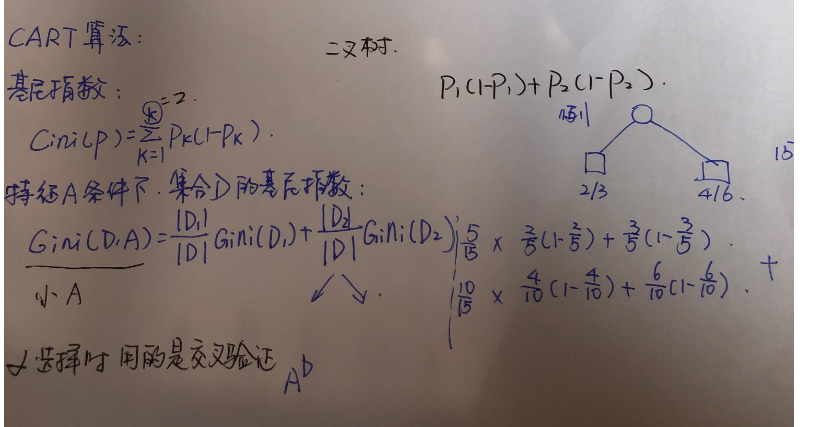 CART算法:
二叉树.
基尼指数:
P₁(1-P₁)+P₂(1-P₂).
K=2.
Gini(p)=∑ₖ₌₁ᴷ Pₖ(1-Pₖ).
2/3
4/6.
15
特征A条件下.集合D的基尼指数:
Gini(D,A)=|D₁|/|D| Gini(D₁)+|D₂|/|D| Gini(D₂)
5/15 × 2/5(1-2/5)+3/5(1-3/5).
10/15 × 4/10(1-4/10)+6/10(1-6/10).
+
小 A
α选择时 用的是交叉验证